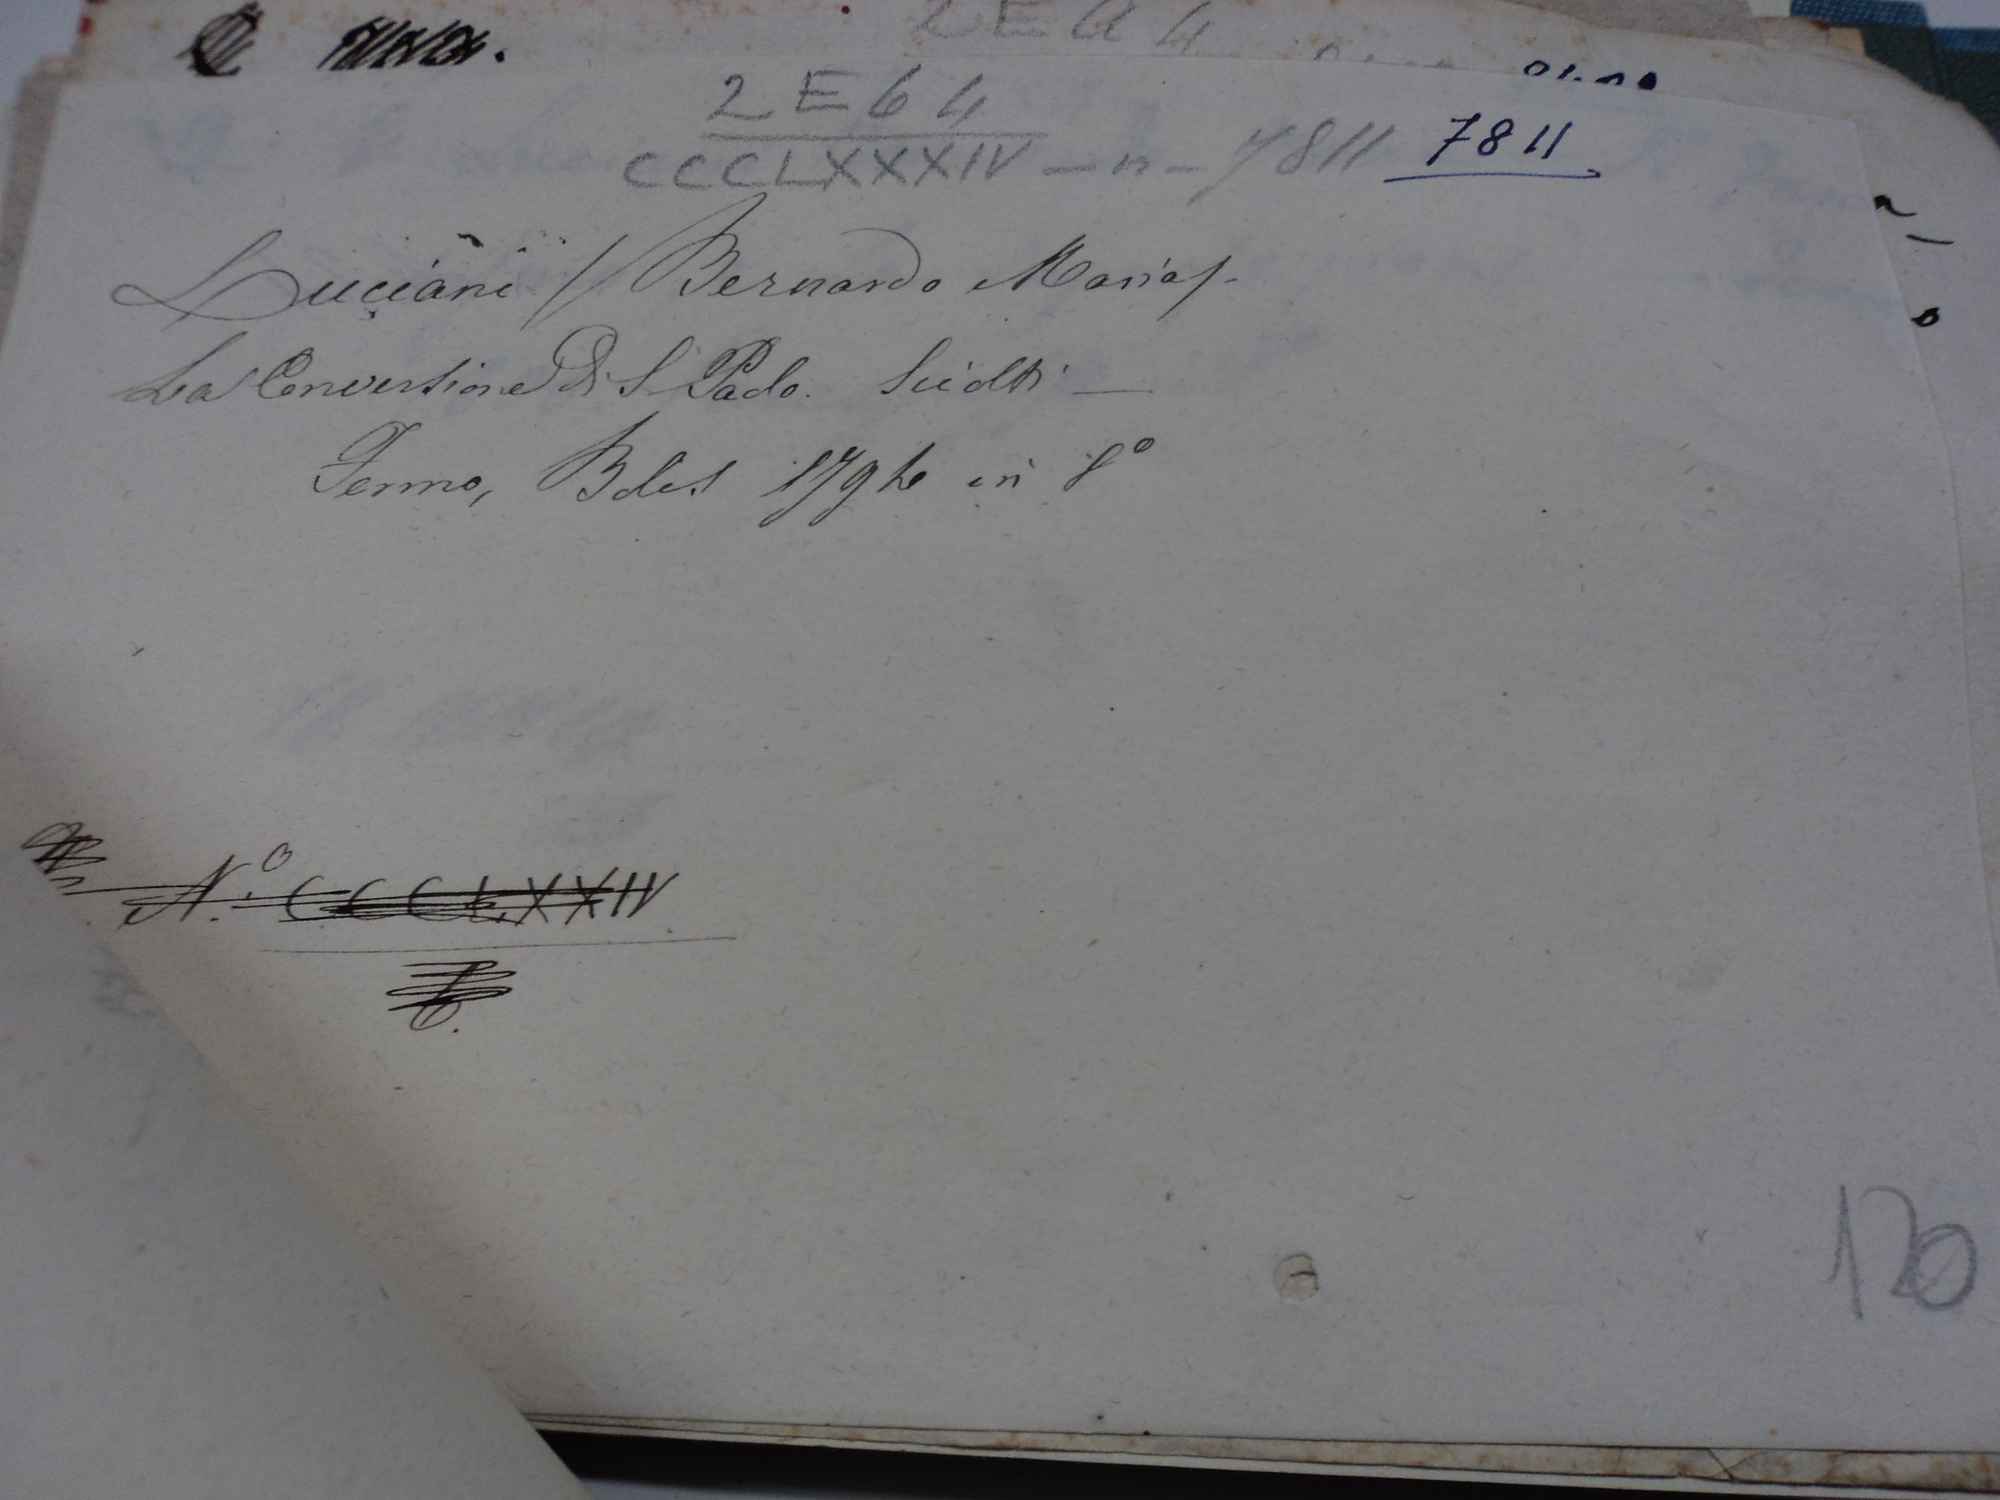 2E64
CCCLXXXIV - n - 7811 7811
Luciani / Bernardo Maria /.
La Conversione Di S. Paolo. Sciolti —
Fermo, 179 in 8°
N.° CCCLXXIV
6.
120